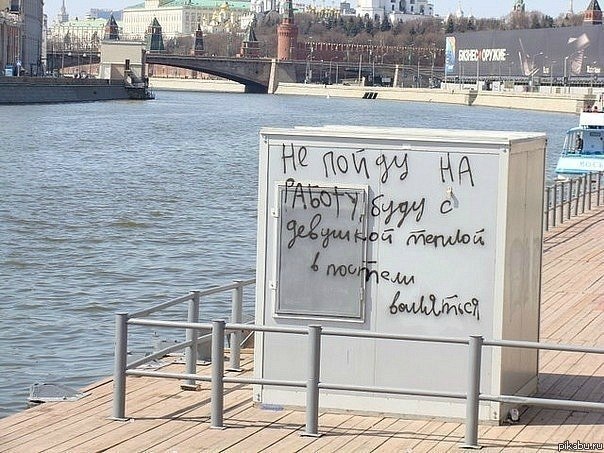 БИЗНЕС ОРУЖИЕ
не пойду на
РАБОТУ, буду с
девушкой теплой
в постели
валяться
pikabu.ru